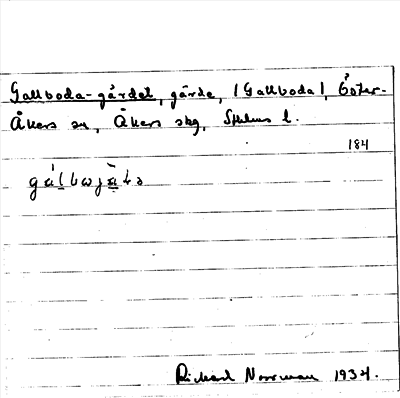 Gallboda-gärdet, gärde, (Gallboda), Öster-
Åkers sn, Åkers skg, Sthlms l.
184
Richard Norrman 1934.